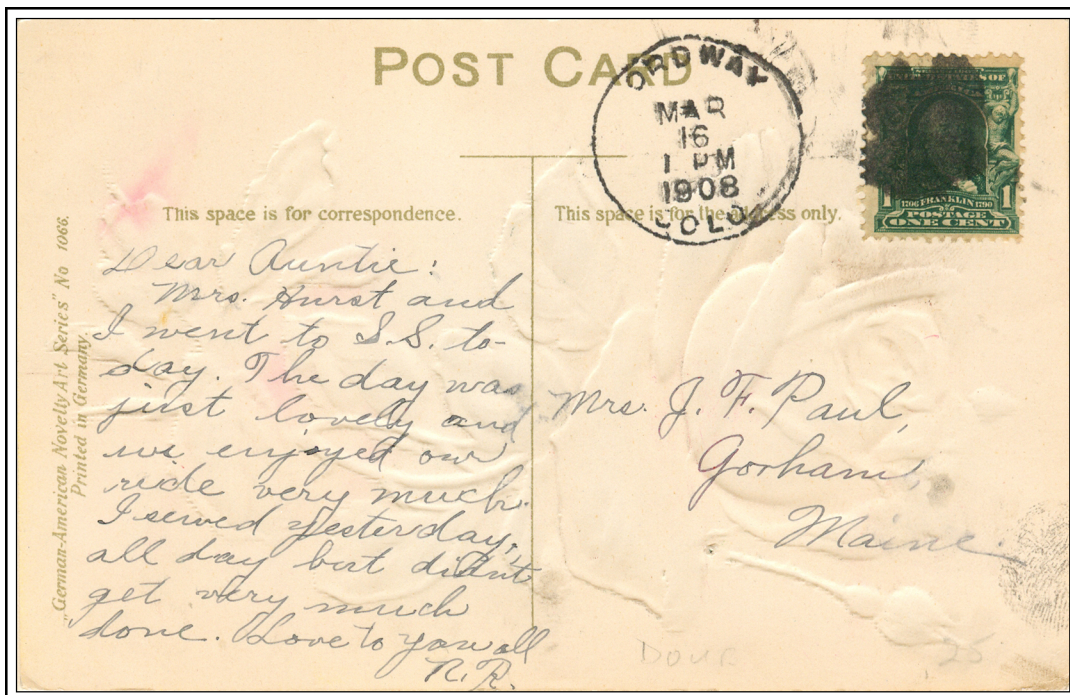 POST CARD
ORDWAY
MAR
16
1 PM
1908
COLO
1706 FRANKLIN 1790
1 1
POSTAGE
ONE CENT
This space is for correspondence.
This space is for the address only.
„German-American Novelty Art Series" No 1066.
Printed in Germany
Dear Auntie:
Mrs. Hurst and
I went to S.S. to-
day. The day was
just lovely and
we enjoyed our
ride very much.
I sewed yesterday,
all day but didn't
get very much
done. Love to you all
R.R.
Mrs. J. F. Paul,
Gorham,
Maine.
25